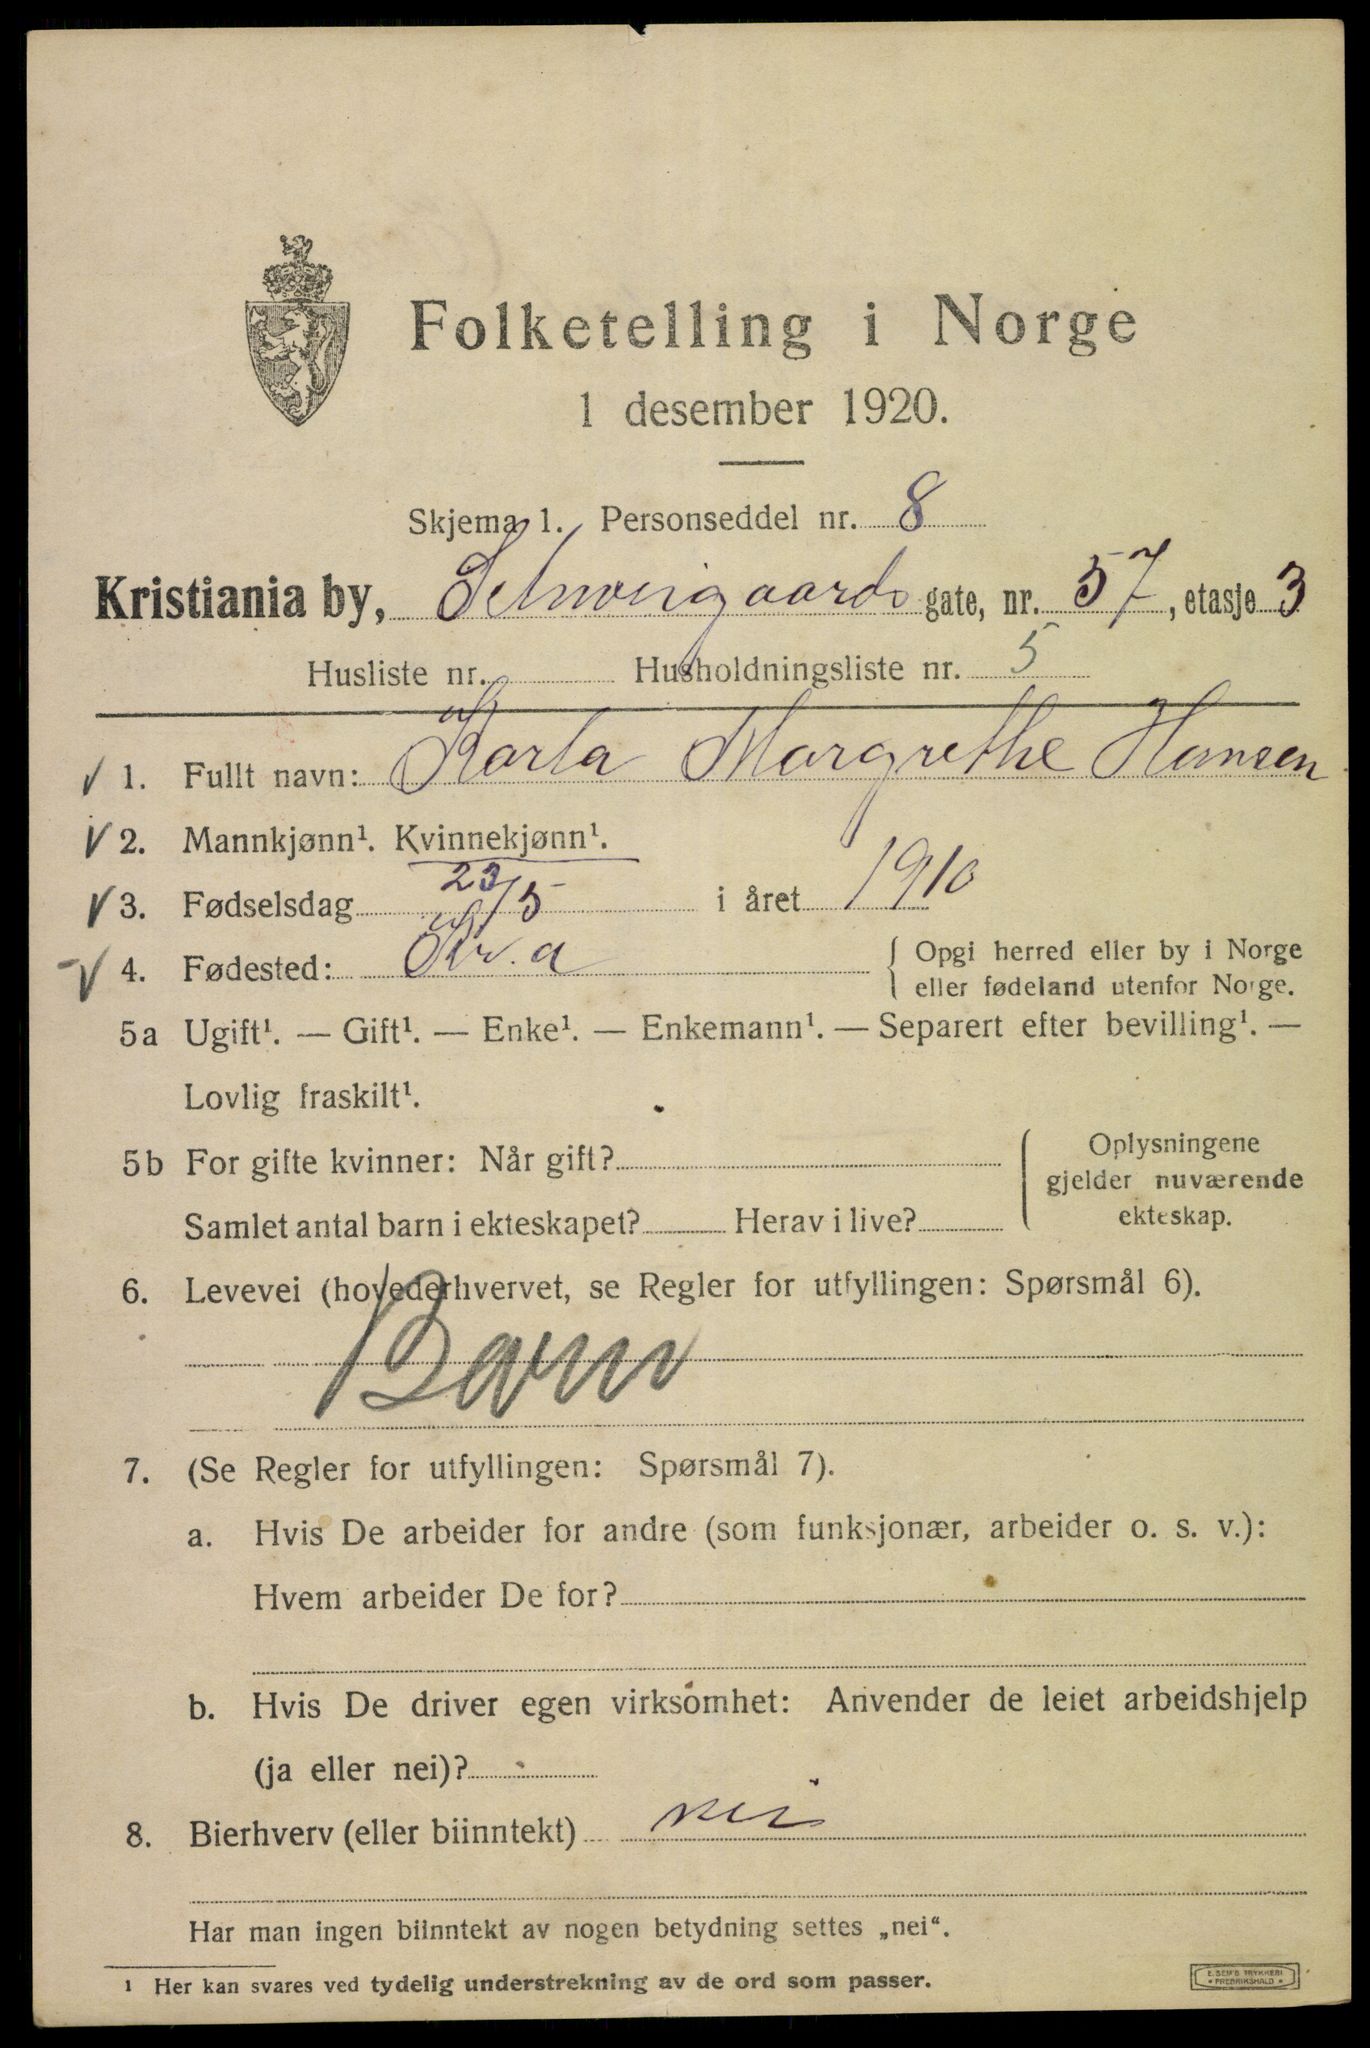 Folketelling i Norge
1 desember 1920.
Skjema 1. Personseddel nr. 8
Kristiania by, Schweigaards gate, nr. 57, etasje 3
Husliste nr. Husholdningsliste nr. 5
1. Fullt navn: Karla Margrethe Hansen
2. Mannkjønn¹. Kvinnekjønn¹.
3. Fødselsdag 23/5 i året 1910
4. Fødested: Kr.a { Opgi herred eller by i Norge
eller fødeland utenfor Norge.
5a Ugift¹. — Gift¹. — Enke¹. — Enkemann¹. — Separert efter bevilling¹. —
Lovlig fraskilt¹.
5b For gifte kvinner: Når gift?
Samlet antal barn i ekteskapet? Herav i live?
Oplysningene
gjelder nuværende
ekteskap.
6. Levevei (hovederhvervet, se Regler for utfyllingen: Spørsmål 6).
Barn
7. (Se Regler for utfyllingen: Spørsmål 7).
a. Hvis De arbeider for andre (som funksjonær, arbeider o. s. v.):
Hvem arbeider De for?
b. Hvis De driver egen virksomhet: Anvender de leiet arbeidshjelp
(ja eller nei)?
8. Bierhverv (eller biinntekt) nei
Har man ingen biinntekt av nogen betydning settes „nei“.
1 Her kan svares ved tydelig understrekning av de ord som passer.
E. SEM'S TRYKKERI
FREDRIKSHALD